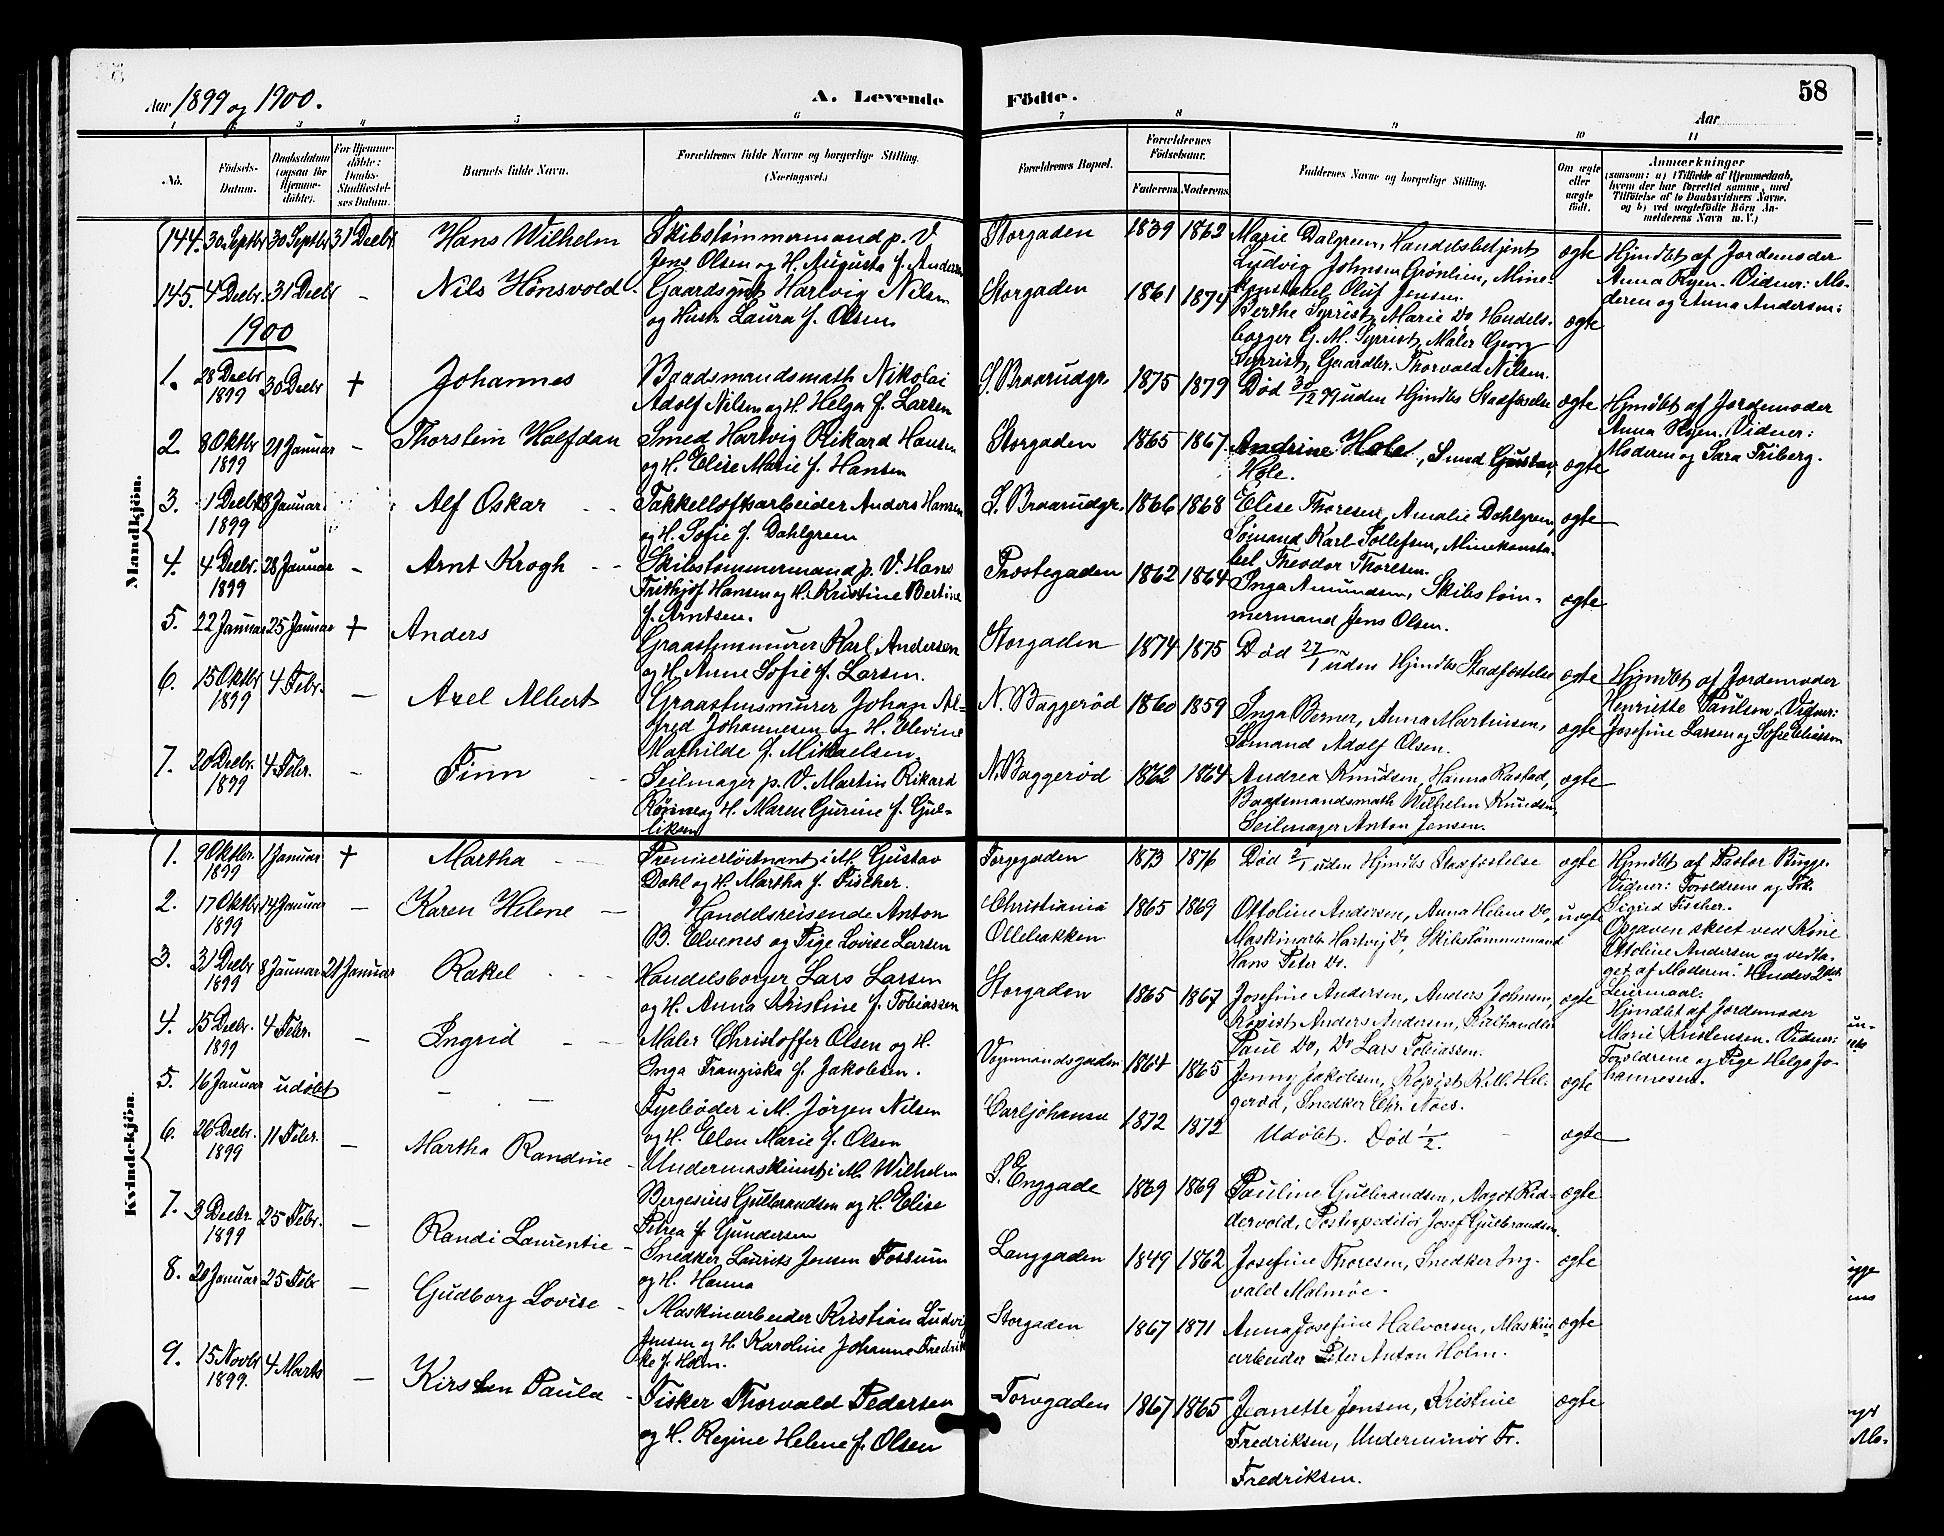 58
Aar 1899 og 1900.
A. Levende Födte.
Aar
1 2 3 4 5 6 7 8 9 10 11
No.
Födsels-Datum.
Daabsdatum (ogsaa for Hjemmedöbte).
For Hjemmedöbte: Daabs-Stadfæstelses Datum.
Barnets fulde Navn.
Forældrenes fulde Navne og borgerlige Stilling.
(Næringsvei.)
Forældrenes Bopæl.
Forældrenes Födselsaar.
Faderens. Moderens.
Faddernes Navne og borgerlige Stilling.
Om ægte eller uægte födt.
Anmærkninger
(saasom: a) i Tilfælde af Hjemmedaab, hvem der har forrettet samme, med Tilföielse af to Daabsvidners Navne, og b) ved uægtefödte Börn Anmelderens Navn m. V.)
Mandkjön.
144. 30 Septbr 30 Septbr 31 Decbr Hans Wilhelm
Skibstömmermand p. V.
Jens Olsen og H. Augusta f. Andersen
Storgaden 1839 1862
Marie Dalgreen, Handelsbetjent
Ludvig Johnsen Grönlien, Minekonstabel Oluf Jensen.
ægte
Hjmdbt af Jordemoder
Anna Ryen. Vidner: Moderen og Anna Andersen.
145. 4 Decbr. 31 Decbr - Nils Hönsvold
Gaardsgut Hartvig Nilsen
og Hustr. Laura f. Olsen
Storgaden 1861 1874
Berthe Syrrist, Marie Do Handelsborger G. M. Syrrist, Maler Georg
Syrrist, Gaardbr. Thorvald Nilsen.
ægte
1900
1. 28 Decbr 1899 30 Decbr + Johannes
Baadsmandsmath Nikolai
Adolf Nilsen og H. Helga f. Larsen
S. Braarudgr. 1875 1879
Död 30/12 99 uden Hjmdbs Stadfæstelse
ægte
Hjmdbt af Jordemoder
Anna Ryen. Vidner:
Moderen og Sara Friberg.
2. 8 Oktbr 1899 21 Januar - Thorstein Halfdan
Smed Hartvig Rikard Hansen
og H. Elise Marie f. Hansen
Storgaden 1865 1867
Andrine Hole, Smed Gustav
Hole.
ægte
3. 1 Decbr 1899 8 Januar Alf Oskar
Takkelloftsarbeider Anders Hansen
og H. Sofie f. Dahlgreen
S. Braarudgr. 1866 1868
Elise Thoresen, Amalie Dahlgreen,
Sömand Karl Tollefsen, Minekonstabel Theodor Thoresen.
ægte
4. 4 Decbr. 1899 28 Januar - Arnt Krogh
Skibstömmermand p. V. Hans
Frithjof Hansen og H. Kristine Bertine
f. Arntsen.
Præstegaden 1862 1864
Inga Amundsen, Skibstömmermand Jens Olsen.
ægte
5. 22 Januar 25 Januar + Anders
Graastensmurer Karl Andersen
og H. Anne Sofie f. Larsen.
Storgaden 1874 1875
Död 27/1 uden Hjmdbs Stadfæstelse
ægte
Hjmdbt af Jordemoder
Henriette Paulsen. Vidner:
Josefine Larsen og Sofie Eliassen
6. 15 Oktbr 1899 4 Febr. - Axel Albert
Graastensmurer Johan Alfred Johannesen og H. Elevine
Mathilde f. Mikaelsen
N. Baggeröd 1860 1859
Inga Berner, Anna Martinsen,
Sömand Adolf Olsen.
ægte
7. 20 Decbr. 1899 4 Febr. - Finn
Seilmager p. V. Martin Rikard
Rönne og H. Maren Gurine f. Gulliksen
N. Baggeröd 1862 1864
Andrea Knudsen, Hanna Rastad,
Baadsmandsmath Wilhelm Knudsen,
Seilmager Anton Jensen.
ægte
Kvindekjön.
1. 9 Oktbr. 1899 1 Januar + Martha
Premierlöitnant i M. Gustav
Dahl og H. Martha f. Fischer.
Torvgaden 1873 1876
Död 2/1 uden Hjmdbs Stadfæstelse
ægte
Hjmdbt af Pastor Bugge.
Vidner: Forældrene og Frk.
Sigrid Fischer.
2. 17 Oktbr 1899 14 Januar - Karen Helene
Handelsreisende Anton
B. Elvenes og Pige Lovise Larsen
Christiania
Ollebakken 1865 1869
Ottoline Andersen, Anna Helene Do,
Maskinarb. Hartvig Do, Skibstömmermand
Hans Peter Do.
uægte
Opgaven skeet ved Kone
Ottoline Andersen og vedtaget af Moderen. Hendes 2det
Leiermaal.
3. 31 Decbr 1899 8 Januar 21 Januar Rakel
Handelsborger Lars Larsen
og H. Anna Kristine f. Tobiassen
Storgaden 1865 1867
Josefine Andersen, Anders Johnsen,
Kopist Anders Andersen, Kulhandler
Paul Do, Do Lars Tobiassen.
ægte
Hjmdbt af Jordemoder
Marie Kristensen. Vidner:
Forældrene og Pige Helga Johannesen.
4. 15 Decbr. 1899 4 Febr. - Ingrid
Maler Christoffer Olsen og H.
Inga Franziska f. Jakobsen.
Vognmandsgaden 1864 1865
Jenny Jakobsen, Kopist K. Helgeröd, Snedker Chr. Noes.
ægte
5. 16 Januar udöbt - -
Fyrböder i M. Jörgen Nilsen
og H. Elen Marie f. Olsen
Carljohansv 1872 1872
Udöbt. Död 1/2.
ægte
6. 26 Decbr. 1899 11 Febr. - Martha Randine
Undermaskinist i M. Wilhelm
Bergesius Gulbrandsen og H. Elise
Petrea f. Gundersen
S. Enggade 1869 1869
Pauline Gulbrandsen, Aagot Riddervold, Postexpeditör Josef Gulbrandsen
ægte
7. 3 Decbr 1899 25 Febr. - Randi Laurentie
Snedker Laurits Jensen Fossum
og H. Hanna
Langgaden 1849 1862
Josefine Thoresen, Snedker Ingvald Malmöe.
ægte
8. 20 Januar 25 Febr - Gudborg Lovise
Maskinarbeider Kristian Ludvig
Jensen og H. Karoline Johanne Fredrikke f. Holm.
Storgaden 1867 1871
Anna Josefine Halvorsen, Maskinarbeider Peter Anton Holm.
ægte
9. 15 Novbr 1899. 4 Marts - Kirsten Paula
Fisker Thorvald Pedersen
og H. Regine Helene f. Olsen
Torvgaden 1867 1865
Jeanette Jensen, Kristine
Fredriksen, Underminör Fr.
Fredriksen.
ægte